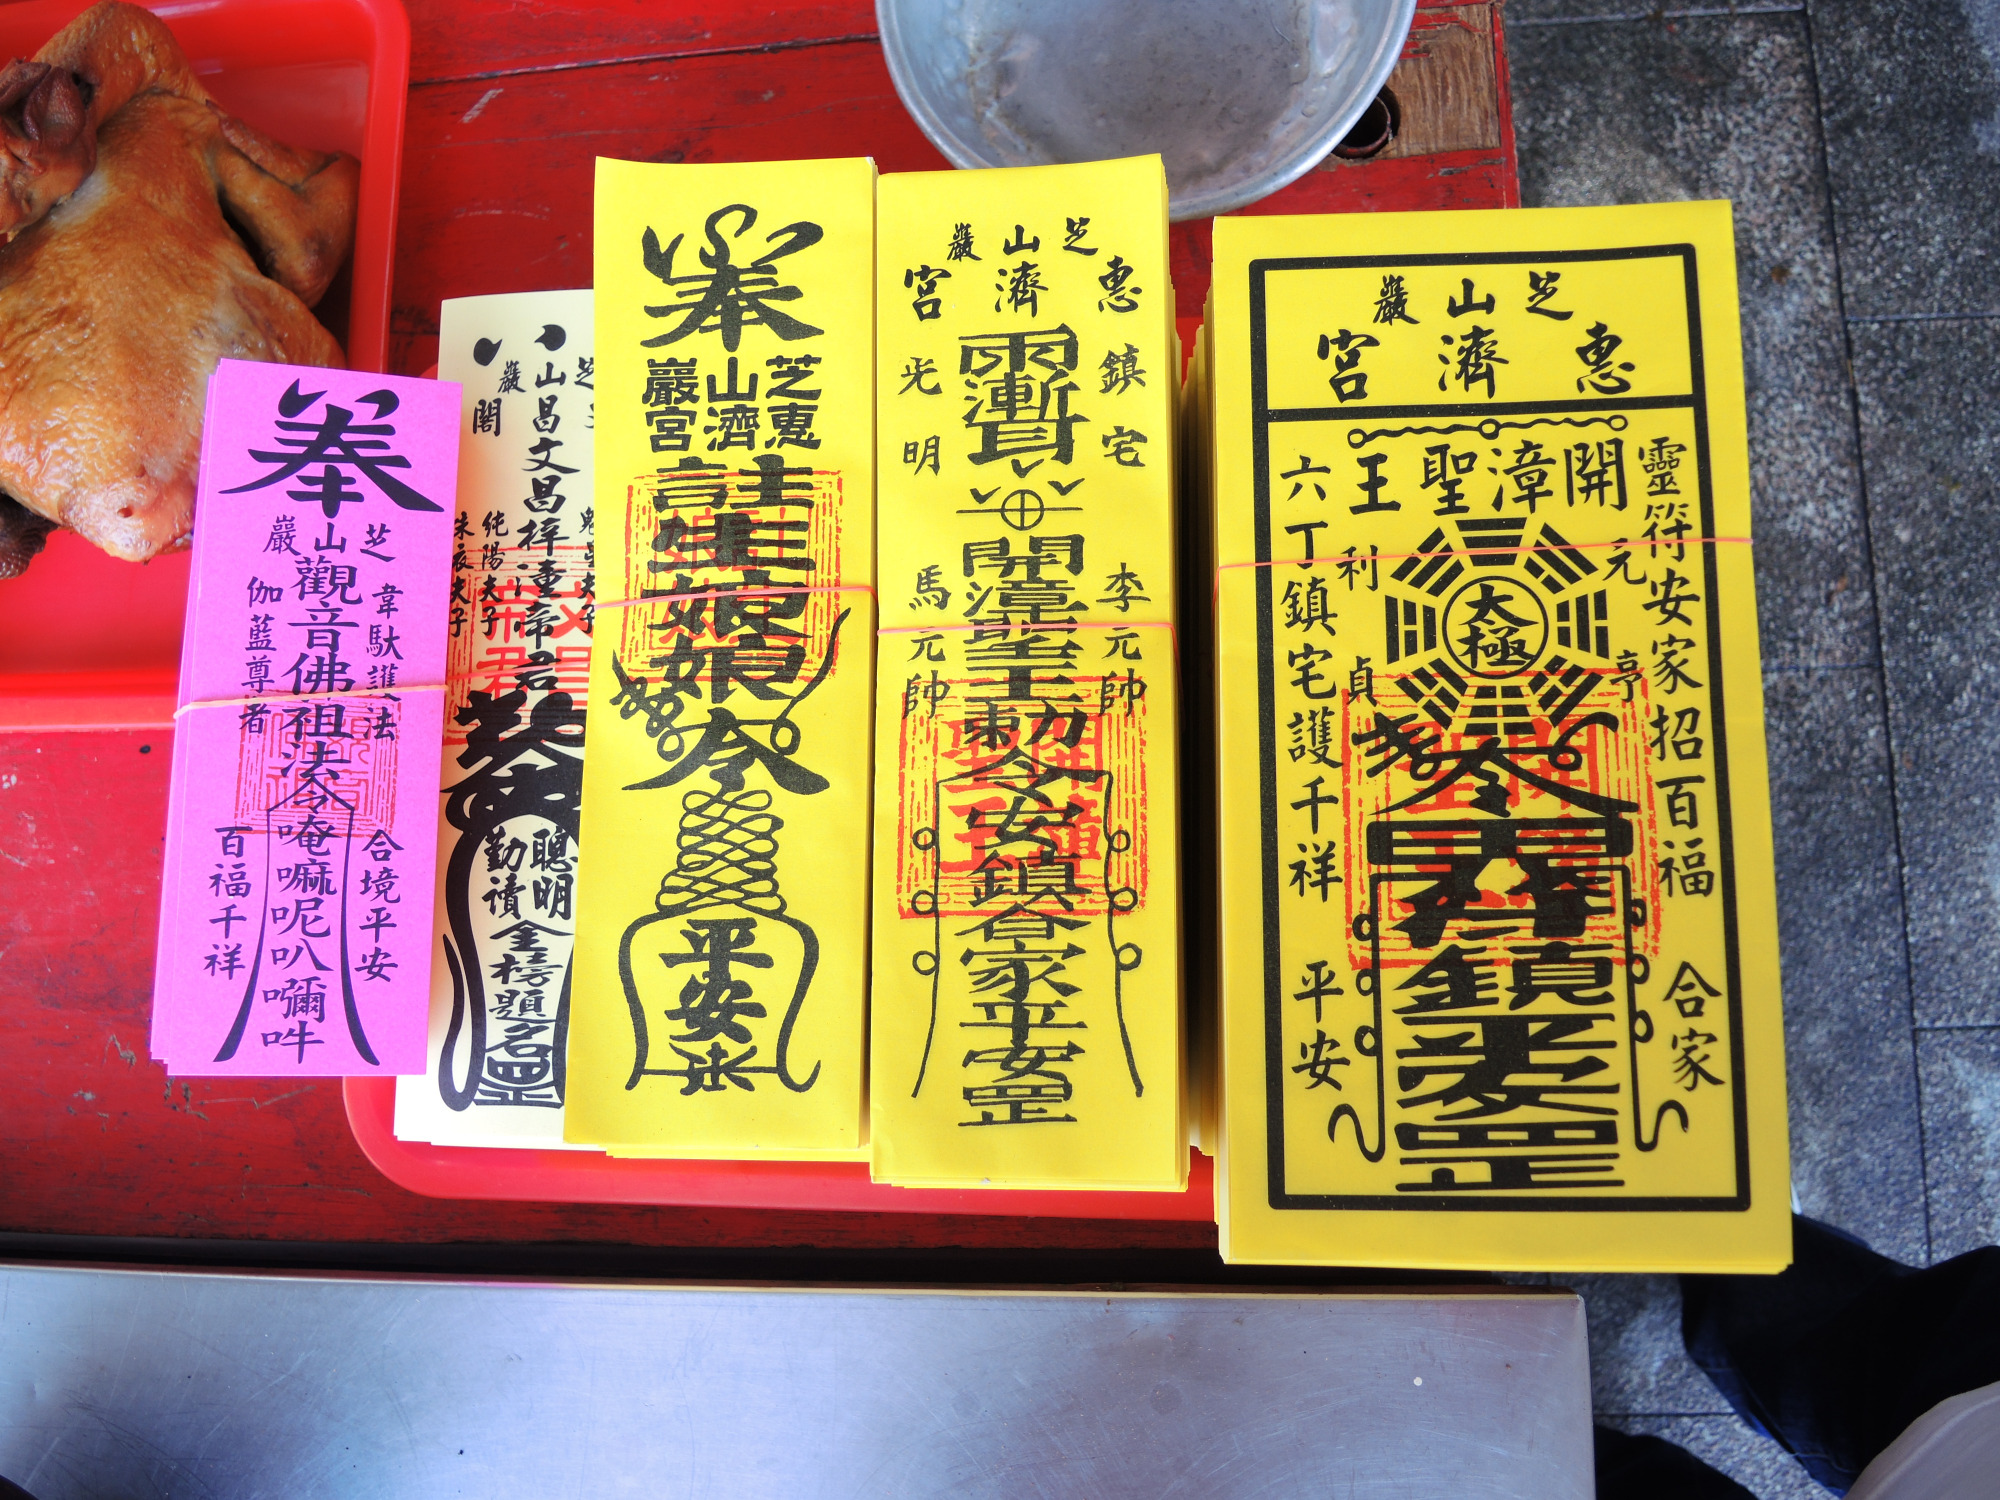 奉
芝山巖
觀音佛祖法令唵嘛呢叭嚩吽
韋馱護法
伽藍尊者
合境平安
百福千祥
山昌文昌梓潼帝君
巖
閣
純陽夫子
朱衣夫子
聰明
勤讀
金榜題名罡
奉
芝山巖
惠濟宮
註生娘娘
令
平安
芝山巖
惠濟宮
鎮宅
光明
開漳聖王勅令安鎮合家平安罡
李元帥
馬元帥
芝山巖
惠濟宮
開漳聖王
靈符安家招百福
六丁鎮宅護千祥
元亨利貞
太極
令
鎮宅平安罡
合家
平安